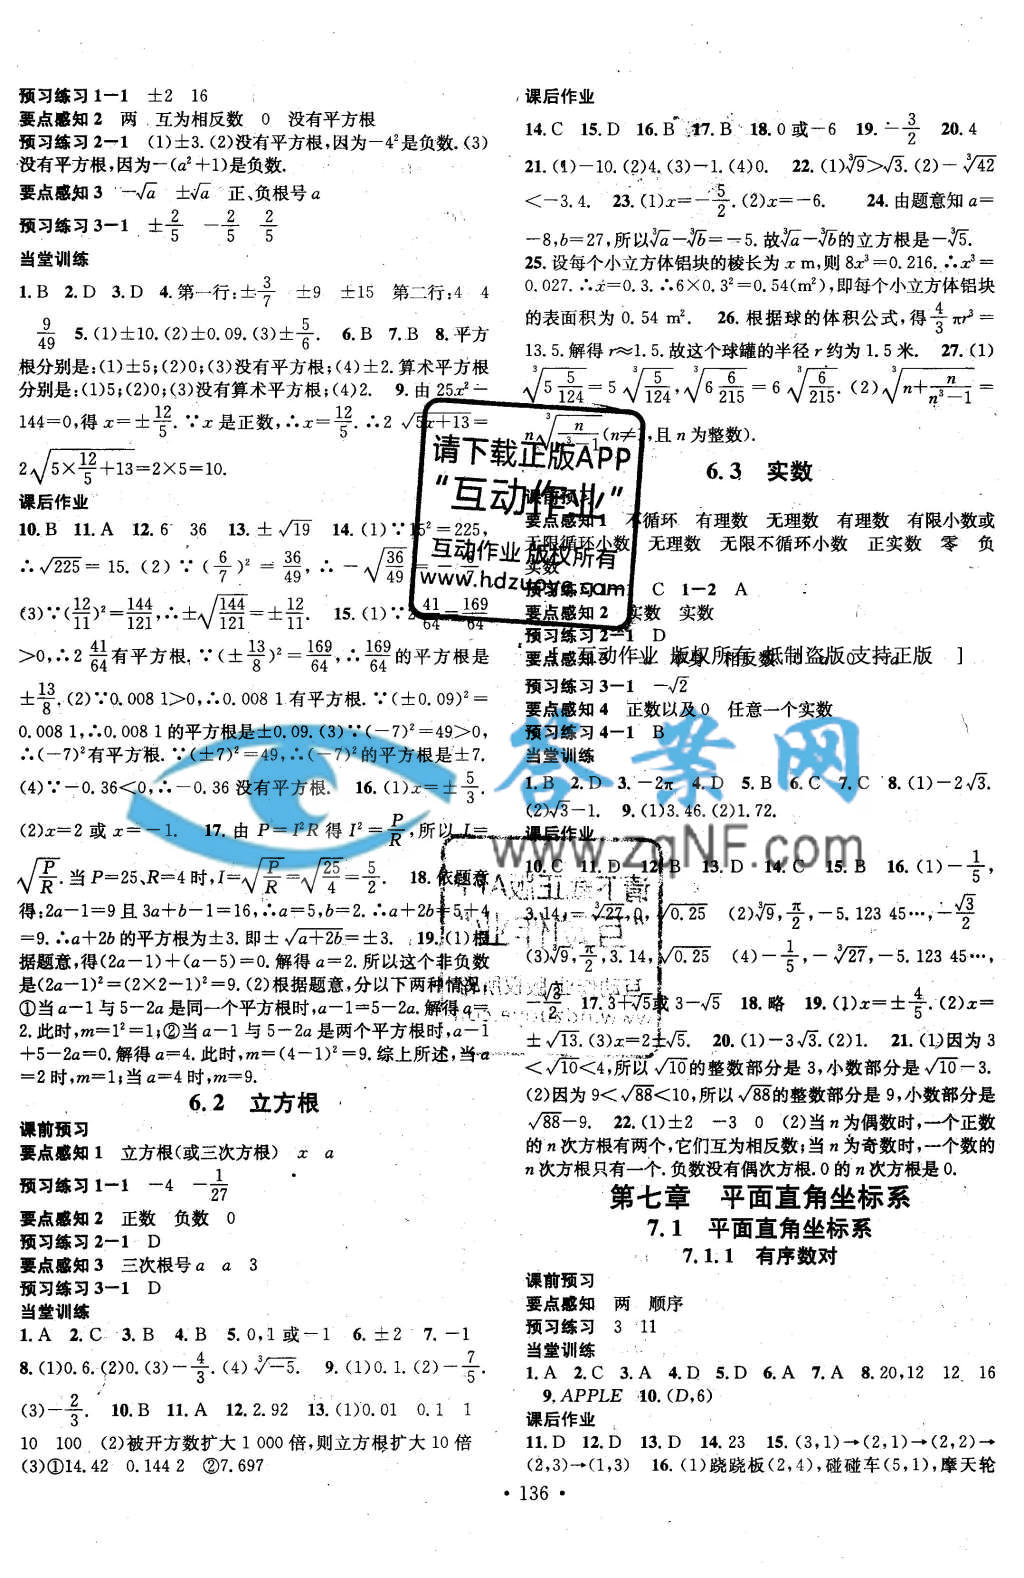 预习练习1-1 ±2 16
要点感知2 两 互为相反数 0 没有平方根
预习练习2-1 (1)±3.(2)没有平方根,因为-4²是负数.(3)
没有平方根,因为-(a²+1)是负数.
要点感知3 -√a ±√a 正、负根号a
预习练习3-1 ±2/5 -2/5 2/5
当堂训练
1.B 2.D 3.D 4.第一行:±3/7 ±9 ±15 第二行:4 4
9/49 5.(1)±10.(2)±0.09.(3)±5/6. 6.B 7.B 8.平方
根分别是:(1)±5;(2)0;(3)没有平方根;(4)±2.算术平方根
分别是:(1)5;(2)0;(3)没有算术平方根;(4)2. 9.由25x²-
144=0,得x=±12/5.∵x是正数,∴x=12/5.∴2√(5x+13)=
2√(5×12/5+13)=2×5=10.
课后作业
10.B 11.A 12.6 36 13.±√19 14.(1)∵15²=225,
∴√225=15.(2)∵(6/7)²=36/49,∴-√(36/49)=-6/7.
(3)∵(12/11)²=144/121,∴±√(144/121)=±12/11. 15.(1)∵2 41/64=169/64
>0,∴2 41/64有平方根.∵(±13/8)²=169/64,∴2 41/64的平方根是
±13/8.(2)∵0.008 1>0,∴0.008 1有平方根.∵(±0.09)²=
0.008 1,∴0.008 1的平方根是±0.09.(3)∵(-7)²=49>0,
∴(-7)²有平方根.∵(±7)²=49,∴(-7)²的平方根是±7.
(4)∵-0.36<0,∴-0.36没有平方根. 16.(1)x=±5/3.
(2)x=2或x=-1. 17.由P=I²R得I²=P/R,所以I=
√(P/R).当P=25、R=4时,I=√(P/R)=√(25/4)=5/2. 18.依题意
得:2a-1=9且3a+b-1=16,∴a=5,b=2.∴a+2b=5+4
=9.∴a+2b的平方根为±3.即±√(a+2b)=±3. 19.(1)根
据题意,得(2a-1)+(a-5)=0.解得a=2.所以这个非负数
是(2a-1)²=(2×2-1)²=9.(2)根据题意,分以下两种情况:
①当a-1与5-2a是同一个平方根时,a-1=5-2a.解得a=
2.此时,m=1²=1;②当a-1与5-2a是两个平方根时,a-1
+5-2a=0.解得a=4.此时,m=(4-1)²=9.综上所述,当a
=2时,m=1;当a=4时,m=9.
6.2 立方根
课前预习
要点感知1 立方根(或三次方根) x a
预习练习1-1 -4 -1/27
要点感知2 正数 负数 0
预习练习2-1 D
要点感知3 三次根号a a 3
预习练习3-1 D
当堂训练
1.A 2.C 3.B 4.B 5.0,1或-1 6.±2 7.-1
8.(1)0.6.(2)0.(3)-4/3.(4)³√-5. 9.(1)0.1.(2)-7/5.
(3)-2/3. 10.B 11.A 12.2.92 13.(1)0.01 0.1 1
10 100 (2)被开方数扩大1 000倍,则立方根扩大10倍
(3)①14.42 0.144 2 ②7.697
课后作业
14.C 15.D 16.B 17.B 18.0或-6 19.-3/2 20.4
21.(1)-10.(2)4.(3)-1.(4)0. 22.(1)³√9>√3.(2)-³√42
<-3.4. 23.(1)x=-5/2.(2)x=-6. 24.由题意知a=
-8,b=27,所以³√a-³√b=-5.故³√a-³√b的立方根是-³√5.
25.设每个小立方体铝块的棱长为x m,则8x³=0.216.∴x³=
0.027.∴x=0.3.∴6×0.3²=0.54(m²),即每个小立方体铝块
的表面积为0.54 m². 26.根据球的体积公式,得4/3πr³=
13.5.解得r≈1.5.故这个球罐的半径r约为1.5米. 27.(1)
³√(5 5/124)=5³√(5/124),³√(6 6/215)=6³√(6/215).(2)³√(n+n/(n³-1))=
n³√(n/(n³-1))(n≠1,且n为整数).
请下载正版APP
“互动作业”
互动作业 版权所有
www.hdzuoye.com
6.3 实数
课前预习
要点感知1 不循环 有理数 无理数 有理数 有限小数或
无限循环小数 无理数 无限不循环小数 正实数 零 负
实数
预习练习1-1 C 1-2 A
要点感知2 实数 实数
预习练习2-1 D
[ 互动作业 版权所有 抵制盗版 支持正版 ]
要点感知3 -a 本身 相反数 0 a 0 -a
预习练习3-1 -√2
要点感知4 正数以及0 任意一个实数
预习练习4-1 B
当堂训练
1.B 2.D 3.-2π 4.D 5.B 6.C 7.C 8.(1)-2√3.
(2)√3-1. 9.(1)3.46.(2)1.72.
答案网
www.zqNF.com
课后作业
10.C 11.D 12.B 13.D 14.D 15.B 16.(1)-1/5,
3.14,-³√27,0,√0.25 (2)³√9,π/2,-5.123 45…,-√3/2
(3)³√9,π/2,3.14,√0.25 (4)-1/5,-³√27,-5.123 45…,
-√3/2 17.3+√5或3-√5 18.略 19.(1)x=±4/5.(2)x=
±√13.(3)x=2±√5. 20.(1)-3√3.(2)1. 21.(1)因为3
<√10<4,所以√10的整数部分是3,小数部分是√10-3.
(2)因为9<√88<10,所以√88的整数部分是9,小数部分是
√88-9. 22.(1)±2 -3 0 (2)当n为偶数时,一个正数
的n次方根有两个,它们互为相反数;当n为奇数时,一个数的
n次方根只有一个.负数没有偶次方根.0的n次方根是0.
第七章 平面直角坐标系
7.1 平面直角坐标系
7.1.1 有序数对
课前预习
要点感知 两 顺序
预习练习 3 11
当堂训练
1.A 2.C 3.A 4.D 5.D 6.A 7.A 8.20,12 12 16
9.APPLE 10.(D,6)
课后作业
11.D 12.D 13.D 14.23 15.(3,1)→(2,1)→(2,2)→
(2,3)→(1,3) 16.(1)跷跷板(2,4),碰碰车(5,1),摩天轮
• 136 •